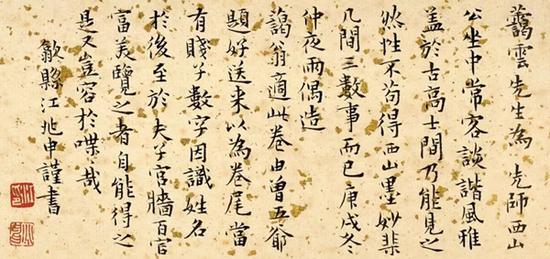 藹雲先生為 先師西山
公坐中常客談諧風雅
盖於古高士間乃能見之
然性不苟得西山墨妙棐
几間三數事而已庚戌冬
仲夜雨偶造
藹翁適此卷由曾五爺
題好送來以為卷尾當
有賤子數字因識姓名
於後至於夫子宮牆百官
富美覽之者自能得之
是又豈容於喋哉
歙縣江兆申謹書